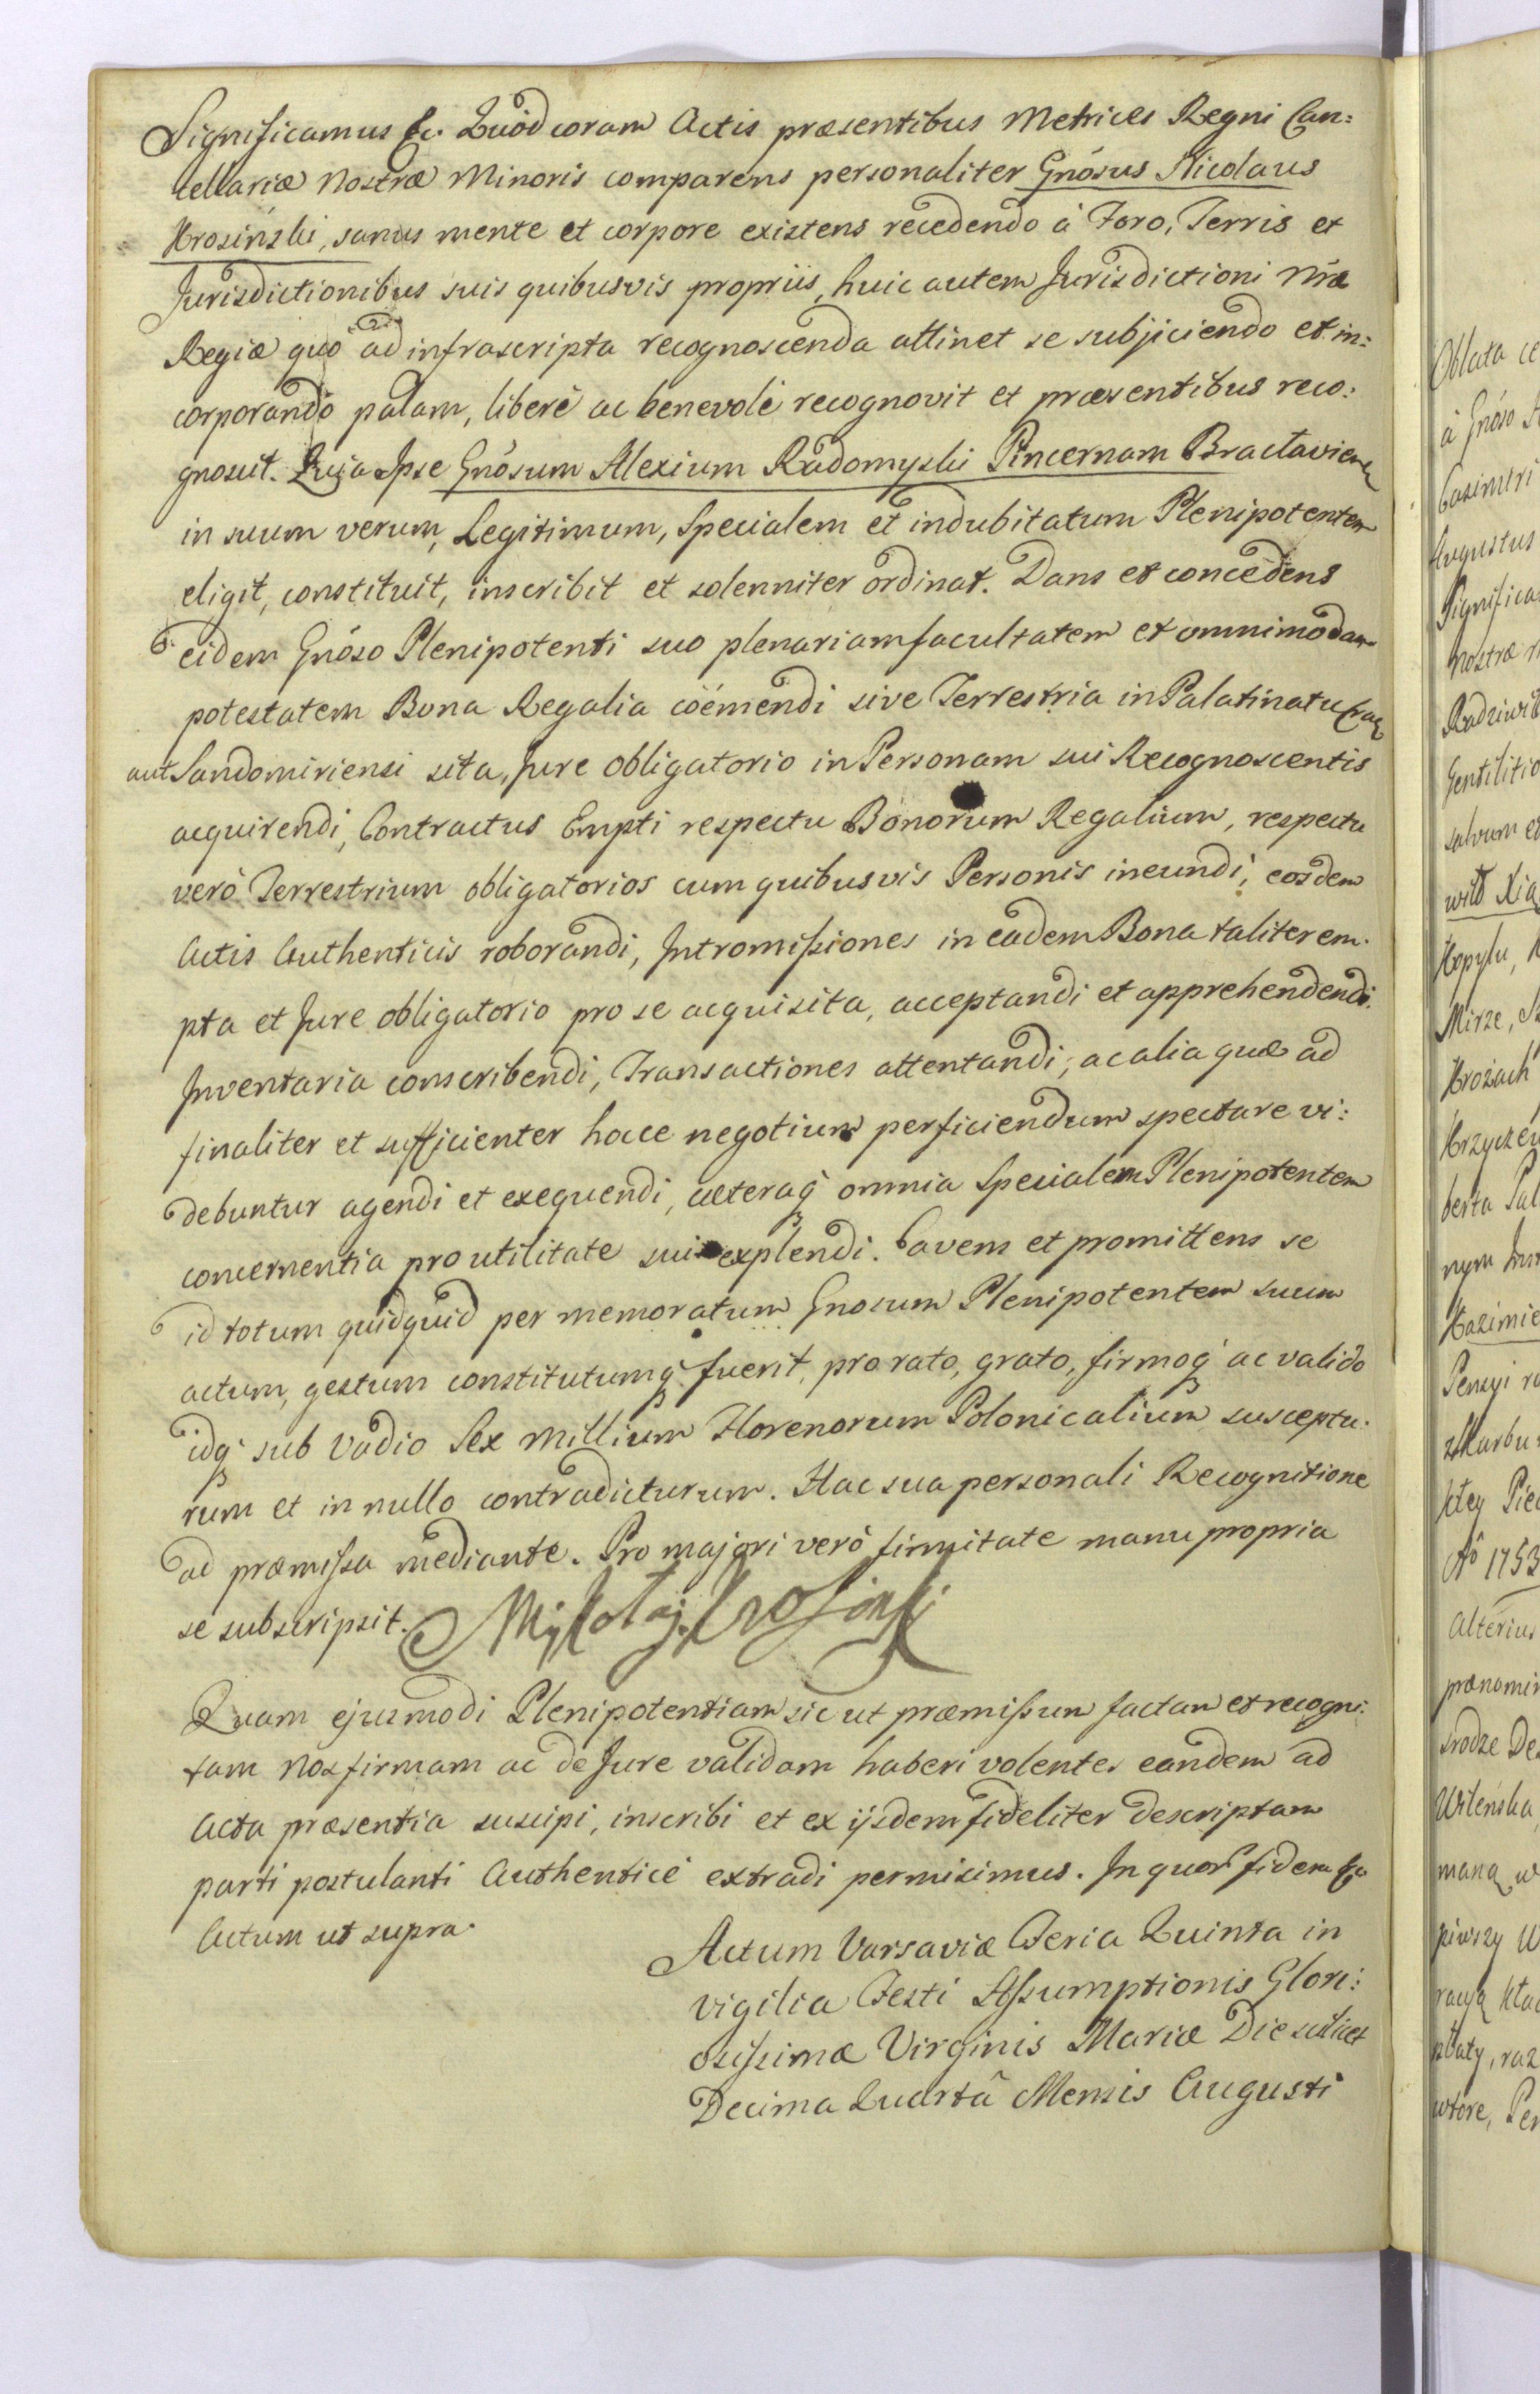 Significamus &c. Quod coram Actis præsentibus Metrices Regni Can:
cellariæ Nostræ Minoris comparens personaliter Gnósus Nicolaus
Krosinski, sanus mente et corpore existens recedendo à Foro, Terris et
Jurisdictionibus suis quibusvis propriis, huic autem Jurisdictioni Nræ
Regiæ quo ad infrascripta recognoscenda attinet se subjiciendo et in:
corporando palam, liberè ac benevolè recognovit et præsentibus reco:
gnoscit. Quia Ipse Gnósum Alexium Radomyski Pincernam Bractavien
in suum verum, Legitimum, Specialem et indubitatum Plenipotentem
eligit, constituit, inscribit et solenniter ordinat. Dans et concedens
eidem Gnóso Plenipotenti suo plenariam facultatem et omnimodam
potestatem Bona Regalia coëmendi sive Terrestria in Palatinatu Crac
aut Sandomiriensi sita, Jure obligatorio in Personam sui Recognoscentis
acquirendi, Contractus Empti respectu Bonorum Regalium, respectu
verò Terrestrium obligatorios cum quibusvis Personis ineundi, eosdem
Actis Authenticis roborandi, Intromissiones in eadem Bona taliter em:
pta et Jure obligatorio pro se acquisita, acceptandi et apprehendendi.
Inventaria conscribendi, Transactiones attentandi, ac alia quæ ad
finaliter et sufficienter hocce negotium perficiendum spectare vi:
debuntur agendi et exequendi, cæteraq omnia Specialem Plenipotentem
concernentia pro utilitate sui explendi. Cavens et promittens se
id totum quidquid per memoratum Gnosum Plenipotentem suum
actum, gestum constitutumq fuerit, pro rato, grato, firmoq ac valido
idq sub Vadio Sex Millium Florenorum Polonicalium susceptu:
rum et in nullo contradicturum. Hac sua personali Recognitione
ad præmissa mediante. Pro majori verò firmitate manu propria
se subscripsit. Mikołaj Krosinski
Quam ejusmodi Plenipotentiam sic ut præmissum factam et recogni:
tam Nos firmam ac de Jure validam haberi volentes eandem ad
Acta præsentia suscipi, inscribi et ex ijsdem fideliter descriptam
parti postulanti Authenticè extradi permisimus. In quor fidem &c
Actum ut supra.
Actum Varsaviæ Feria Quinta in
vigilia Festi Assumptionis Glori:
osissimæ Virginis Mariæ Die scilicet
Decima Quartâ Mensis Augusti
Oblata
à Gnóso
Casimiri
Augustus
Significa
Nostræ
Radziwił
Gentilitio
salvum
Kopylu,
Mirze,
berta
Kazimie
Pensyi
Aô 1753
Alterius
prænomin
srodze
Wilenska